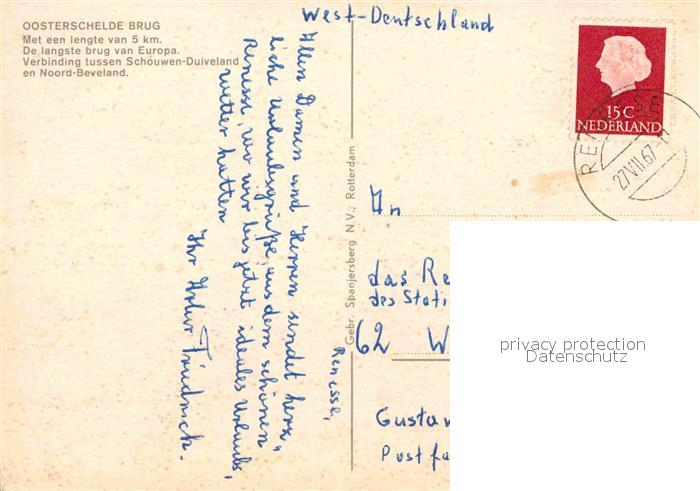 OOSTERSCHELDE BRUG
Met een lengte van 5 km.
De langste brug van Europa.
Verbinding tussen Schouwen-Duiveland
en Noord-Beveland.
West-Deutschland
15 C
NEDERLAND
RENESSE
27 VII.67
Gebr. Spanjersberg N.V., Rotterdam
Renesse,
Allen Damen und Herren sendet herz-
liche Urlaubsgrüße, aus dem schönen
Renesse, wo wir bis jetzt ideales Urlaubs,
wetter hatten
Ihr
An
das Re
des Stati
62 W
Gustav
Postfa
privacy protection
Datenschutz